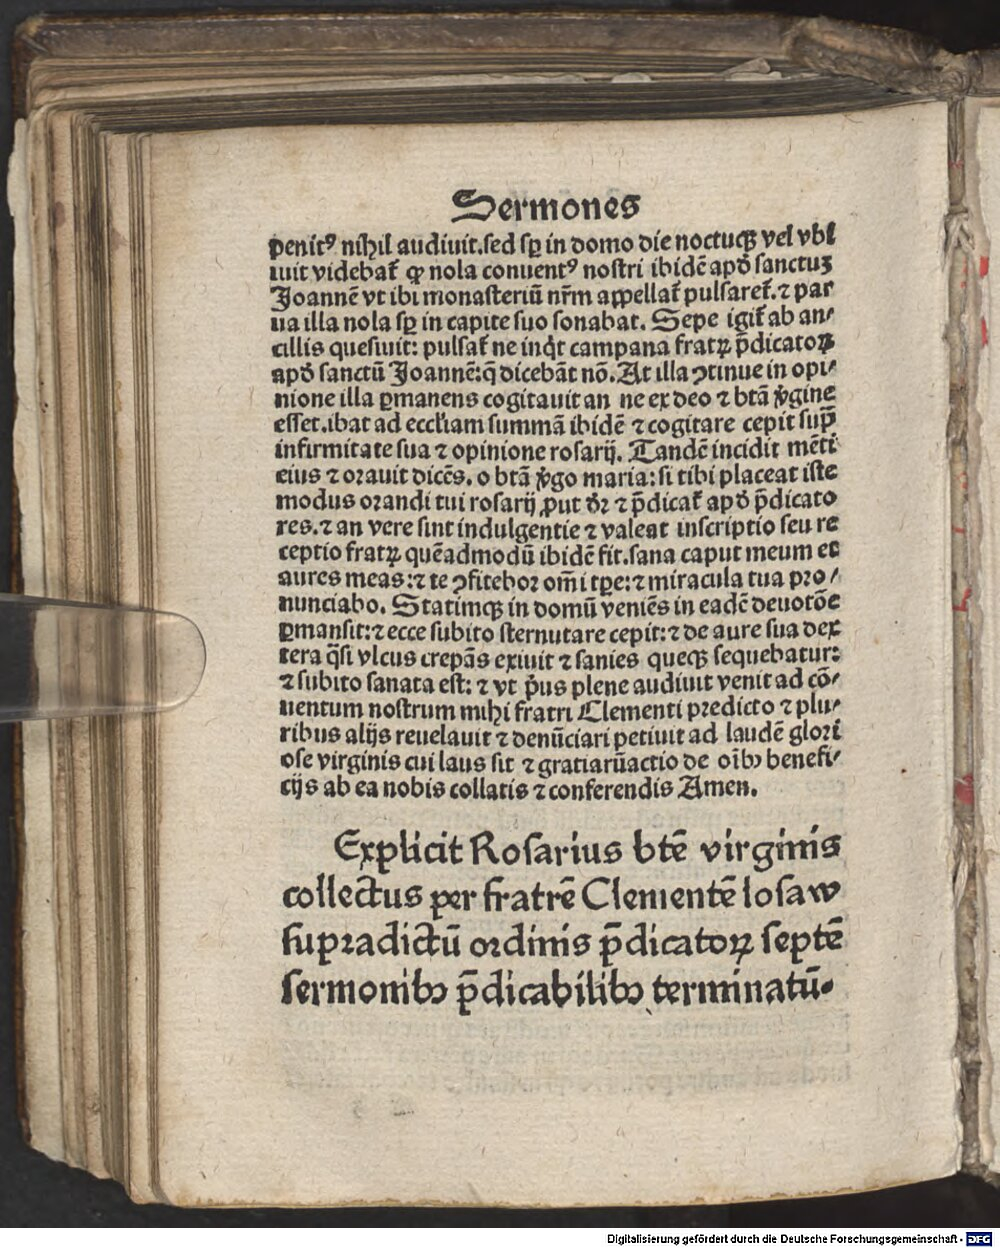 Sermones
penitꝰ nihil audiuit.sed sꝑ in domo die noctuqꝫ vel vbi
iuit videbat̃ ꝙ nola conuentꝰ nostri ibidē apď sanctuꝫ
Joannē vt ibi monasteriū nr̃m appellat̃ pulsaret̃.⁊ par
ua illa nola sꝑ in capite suo sonabat. Sepe igit̃ ab an⸗
cillis quesiuit: pulsat̃ ne inq̇t campana fratꝝ p̄dicatoꝝ
apď sanctū Joannē:q̄ dicebāt nō. At illa ꝯtinue in opi⸗
nione illa ꝑmanens cogitauit an ne ex deo ⁊ btā ꝟgine
esset.ibat ad eccl'iam summā ibidē ⁊ cogitare cepit sup̄
infirmitate sua ⁊ opinione rosarij. Tandē incidit mēti
eius ⁊ orauit dicēs. o btā ꝟgo maria: si tibi placeat iste
modus orandi tui rosarij ꝓut dr̄ ⁊ p̄dicat̃ apď p̄dicato
res.⁊ an vere sint indulgentie ⁊ valeat inscriptio seu re
ceptio fratꝝ quēadmodū ibidē fit.sana caput meum et
aures meas:⁊ te ꝯfitebor om̄i tꝑe:⁊ miracula tua pro⸗
nunciabo. Statimqꝫ in domū veniēs in eadē deuotōe
ꝑmansit:⁊ ecce subito sternutare cepit:⁊ de aure sua dex
tera q̄si vlcus crepās exiuit ⁊ sanies queqꝫ sequebatur:
⁊ subito sanata est: ⁊ vt p̓us plene audiuit venit ad cō⸗
uentum nostrum mihi fratri Clementi predicto ⁊ plu⸗
ribus alijs reuelauit ⁊ denūciari petiuit ad laudē glori
ose virginis cui laus sit ⁊ gratiarūactio de oībꝰ benefi⸗
cijs ab ea nobis collatis ⁊ conferendis Amen.
Explicit Rosarius btē virginis
collectus per fratrē Clementē losaw
supradictū ordinis p̄dicatoꝝ septē
sermonibꝰ p̄dicabilibꝰ terminatū.
Digitalisierung gefördert durch die Deutsche Forschungsgemeinschaft - DFG